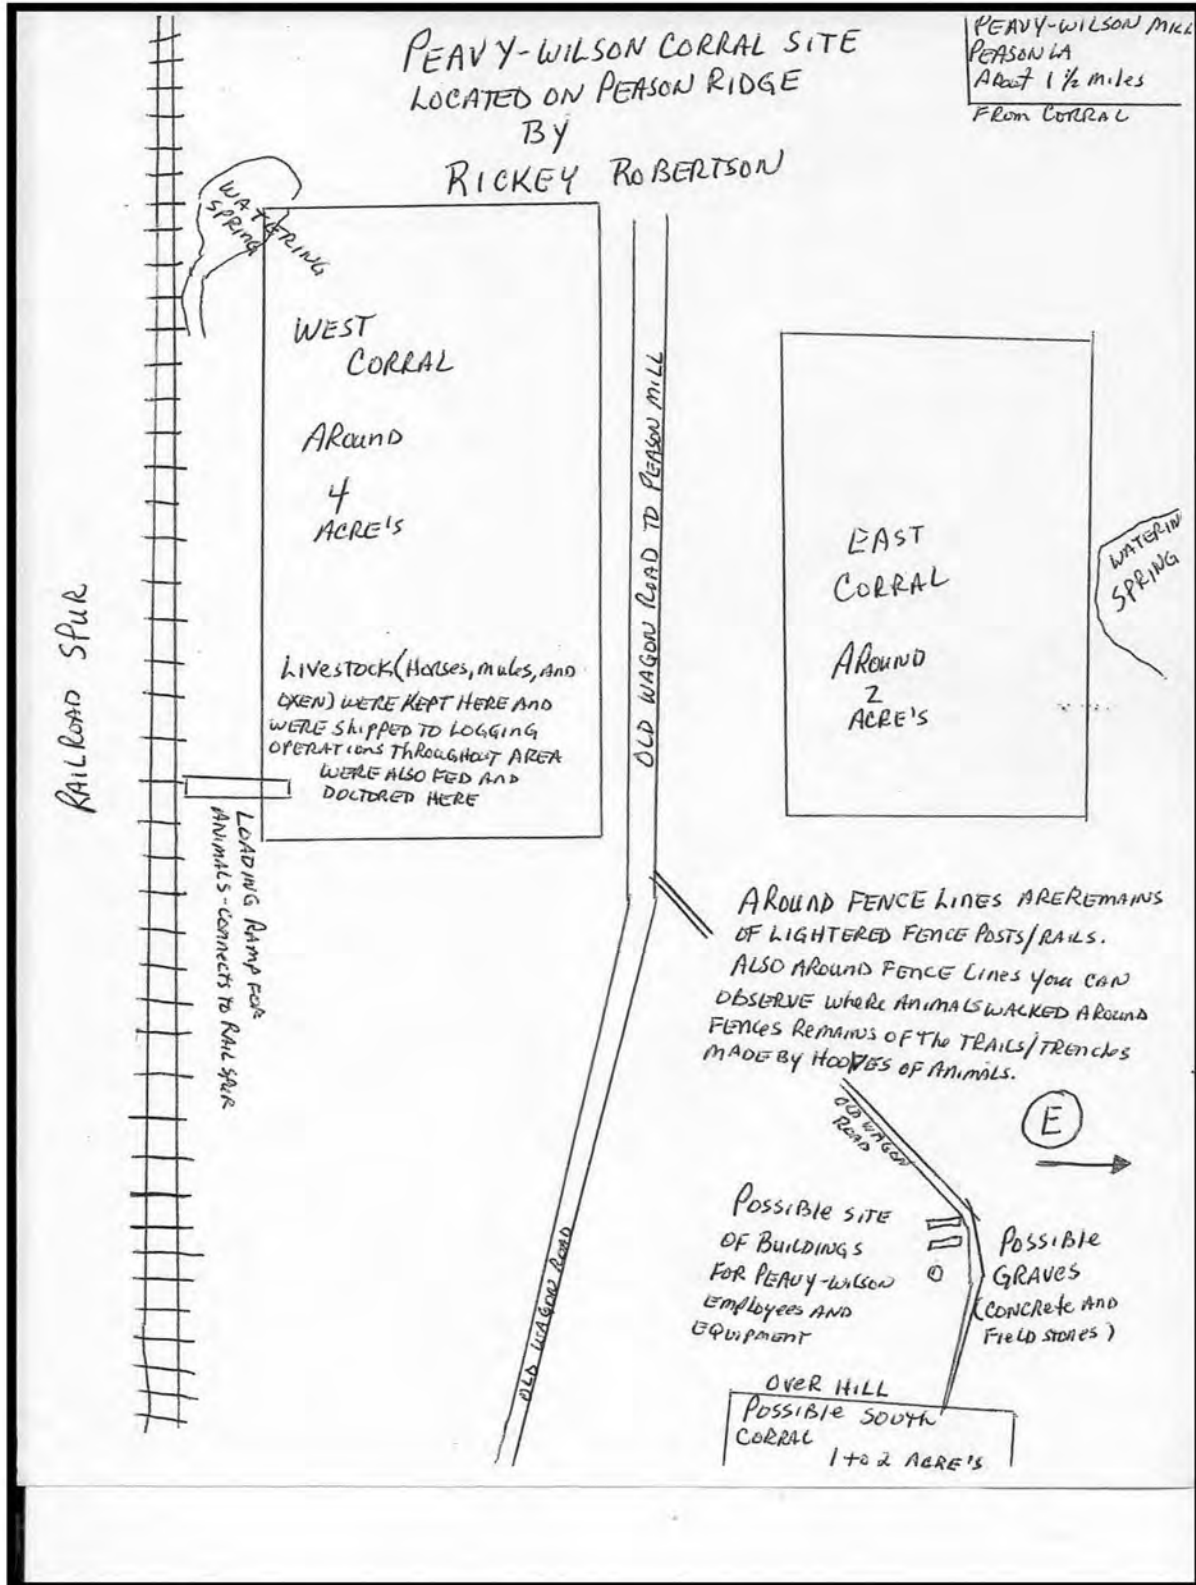 PEAVY-WILSON CORRAL SITE
LOCATED ON PEASON RIDGE
BY
RICKEY ROBERTSON
PEAVY-WILSON MILL
PEASON LA
About 1 1/2 miles
FROM CORRAL
WATERING
SPRING
WEST
CORRAL
AROUND
4
ACRE'S
LIVESTOCK (HORSES, MULES, AND
OXEN) WERE KEPT HERE AND
WERE SHIPPED TO LOGGING
OPERATIONS THROUGHOUT AREA
WERE ALSO FED AND
DOCTORED HERE
RAILROAD SPUR
LOADING RAMP FOR
ANIMALS-CONNECTS TO RAIL SPUR
OLD WAGON ROAD TO PEASON MILL
EAST
CORRAL
AROUND
2
ACRE'S
WATERIN
SPRING
AROUND FENCE LINES ARE REMAINS
OF LIGHTERED FENCE POSTS/RAILS.
ALSO AROUND FENCE LINES YOU CAN
OBSERVE WHERE ANIMALS WALKED AROUND
FENCES REMAINS OF THE TRAILS/TRENCHES
MADE BY HOOVES OF ANIMALS.
E
OLD WAGON
ROAD
POSSIBLE SITE
OF BUILDINGS
FOR PEAVY-WILSON
EMPLOYEES AND
EQUIPMENT
POSSIBLE
GRAVES
(CONCRETE AND
FIELD STONES)
OLD WAGON ROAD
OVER HILL
POSSIBLE SOUTH
CORRAL
1 to 2 ACRE'S